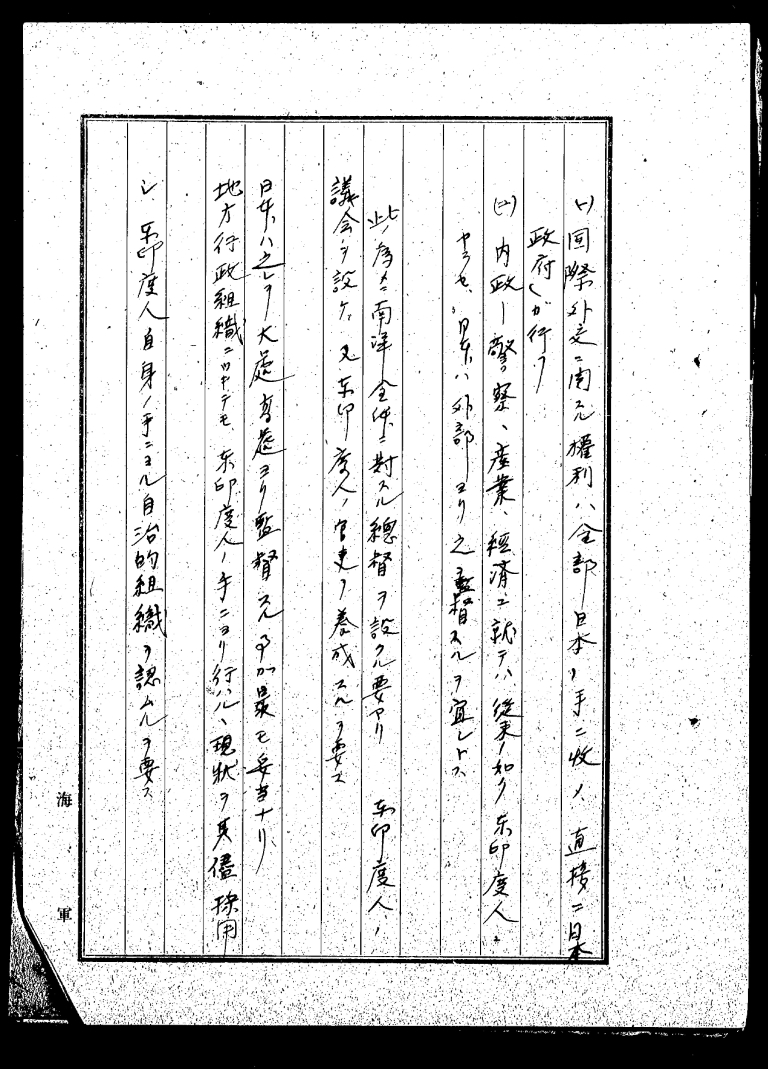 (一)国際外交ニ関スル權利ハ全部日本ノ手ニ收メ、直接ニ日本
政府ガ行フ
(二)内政ー警察、産業、經濟ニ就テハ從來ノ如ク東印度人ニ
ヤラセ、日本ハ外部ヨリ之ヲ監督スルヲ宜シトス
此ノ為メニ南洋全体ニ對スル總督ヲ設クル要アリ 東印度人ノ
議会ヲ設ケ、又東印度人ノ官吏ヲ養成スルヲ要ス
日本ハ之レヲ大處高處ヨリ監督スル事ガ最モ妥当ナリ、
地方行政組織ニツキテモ東印度人ノ手ニヨリ行ハル、現状ヲ其儘採用
シ 東印度人自身ノ手ニヨル自治的組織ヲ認ムルヲ要ス
海軍